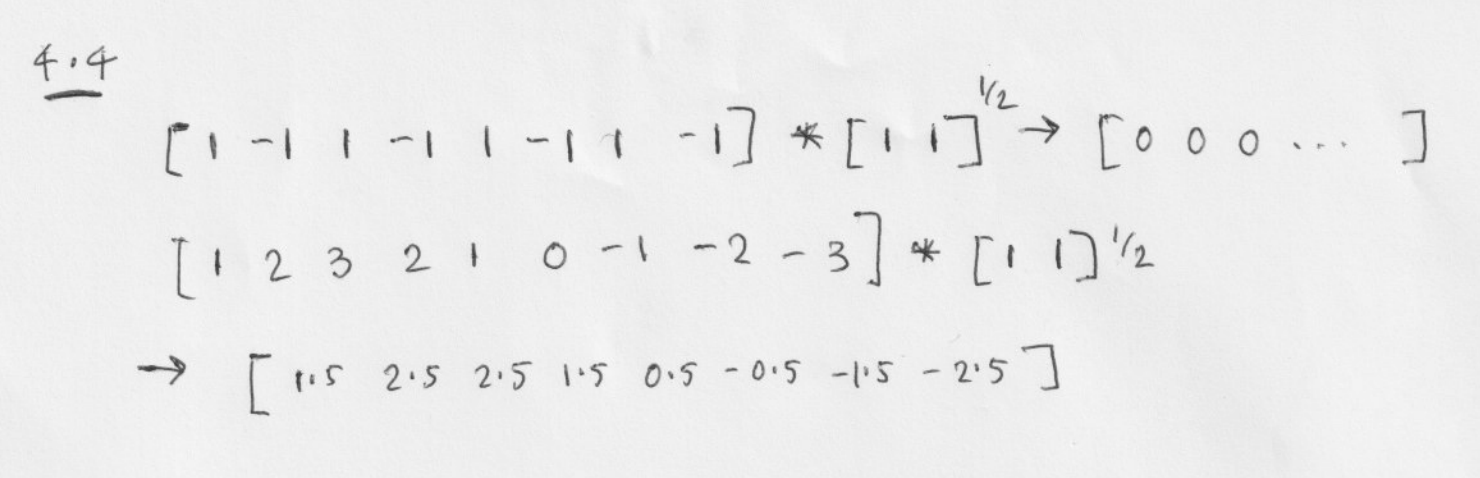 4.4
[1 -1 1 -1 1 -1 1 -1] * [1 1]^1/2 → [0 0 0 ... ]
[1 2 3 2 1 0 -1 -2 -3] * [1 1]^1/2
→ [1.5 2.5 2.5 1.5 0.5 -0.5 -1.5 -2.5]